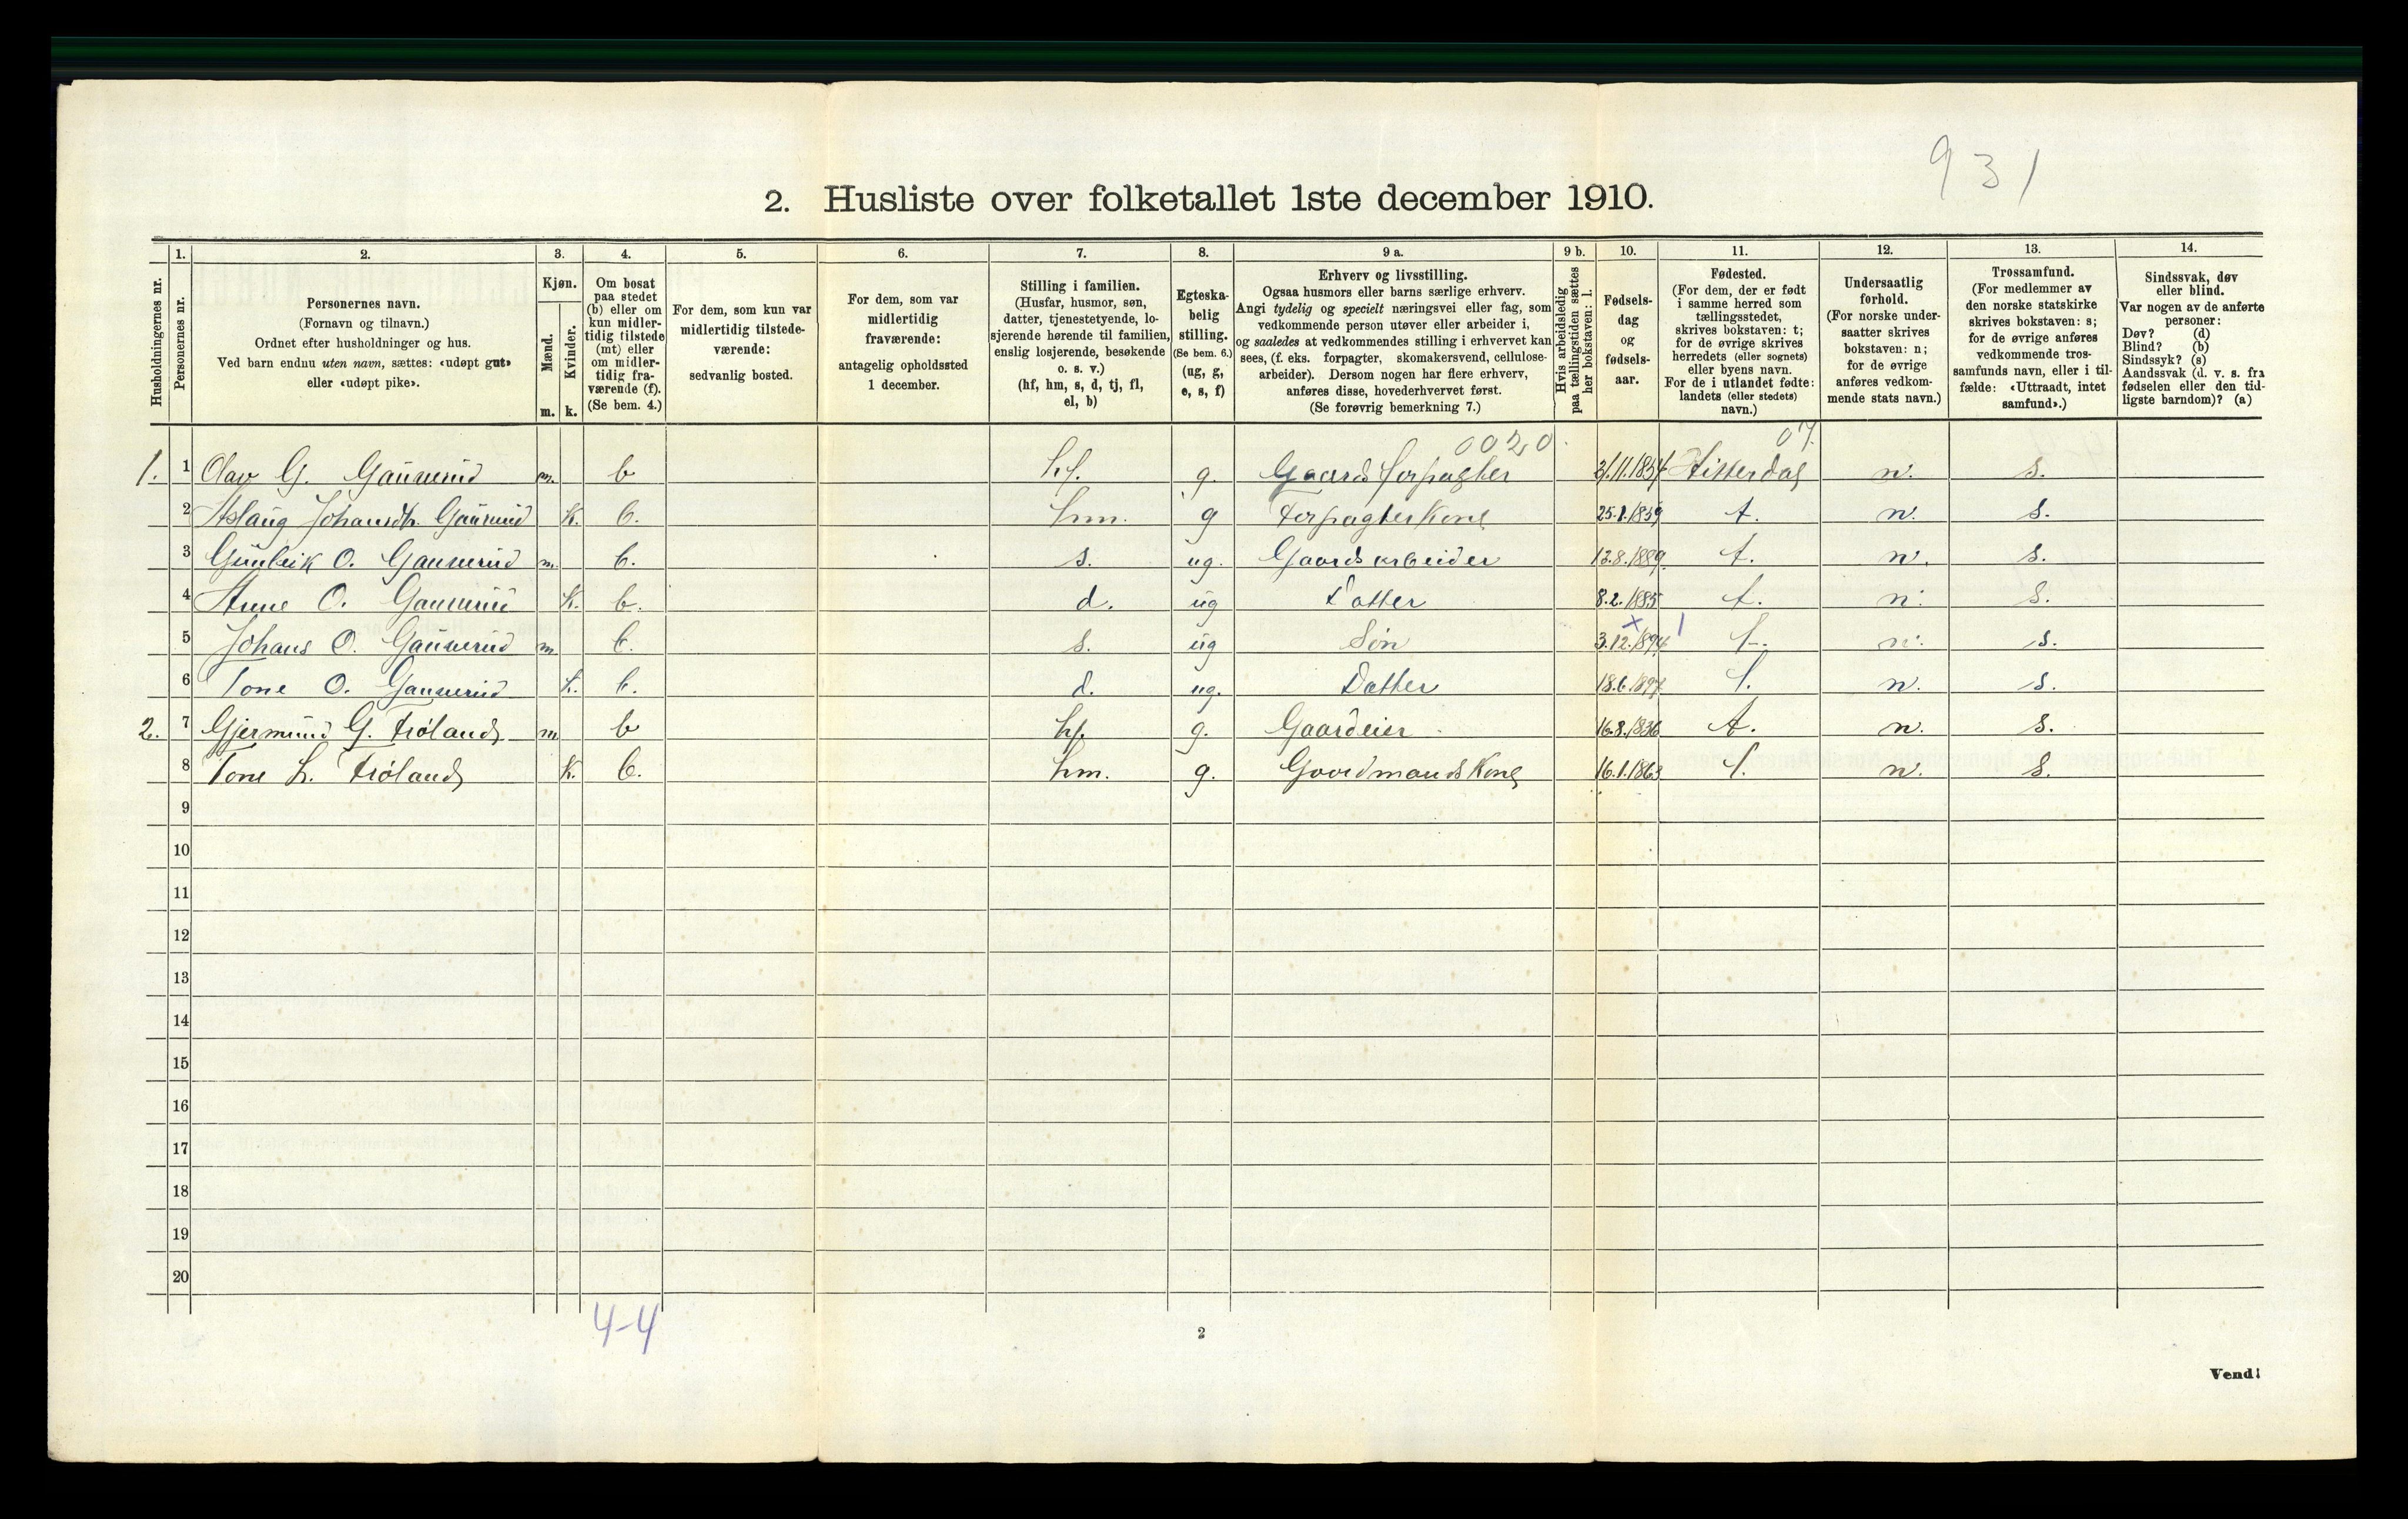 931
2. Husliste over folketallet 1ste december 1910.
Husholdningernes nr.
1. Personernes nr.
2. Personernes navn.
(Fornavn og tilnavn.)
Ordnet efter husholdninger og hus.
Ved barn endnu uten navn, sættes: «udøpt gut»
eller «udøpt pike».
3. Kjøn.
Mænd. m.
Kvinder. k.
4. Om bosat
paa stedet
(b) eller om
kun midler-
tidig tilstede
(mt) eller
om midler-
tidig fra-
værende (f).
(Se bem. 4.)
5. For dem, som kun var
midlertidig tilstede-
værende:
sedvanlig bosted.
6. For dem, som var
midlertidig
fraværende:
antagelig opholdssted
1 december.
7. Stilling i familien.
(Husfar, husmor, søn,
datter, tjenestetyende, lo-
sjerende hørende til familien,
enslig losjerende, besøkende
o. s. v.)
(hf, hm, s, d, tj, fl,
el, b)
8. Egteska-
belig
stilling.
(Se bem. 6.)
(ug, g,
e, s, f)
9 a. Erhverv og livsstilling.
Ogsaa husmors eller barns særlige erhverv.
Angi tydelig og specielt næringsvei eller fag, som
vedkommende person utøver eller arbeider i,
og saaledes at vedkommendes stilling i erhvervet kan
sees, (f. eks. forpagter, skomakersvend, cellulose-
arbeider). Dersom nogen har flere erhverv,
anføres disse, hovederhvervet først.
(Se forøvrig bemerkning 7.)
9 b. Hvis arbeidsledig
paa tællingstiden sættes
her bokstaven: l.
10. Fødsels-
dag
og
fødsels-
aar.
11. Fødested.
(For dem, der er født
i samme herred som
tællingsstedet,
skrives bokstaven: t;
for de øvrige skrives
herredets (eller sognets)
eller byens navn.
For de i utlandet fødte:
landets (eller stedets)
navn.)
12. Undersaatlig
forhold.
(For norske under-
saatter skrives
bokstaven: n;
for de øvrige
anføres vedkom-
mende stats navn.)
13. Trossamfund.
(For medlemmer av
den norske statskirke
skrives bokstaven: s;
for de øvrige anføres
vedkommende tros-
samfunds navn, eller i til-
fælde: «Uttraadt, intet
samfund».)
14. Sindssvak, døv
eller blind.
Var nogen av de anførte
personer:
Døv? (d)
Blind? (b)
Sindssyk? (s)
Aandssvak (d. v. s. fra
fødselen eller den tid-
ligste barndom)? (a)
0020 07
1. 1 Olav G. m. b hf. g. Gaardsforpagter 1854 Hitterdal n. s.
2 Aslaug Johansdtr. K. b. hm. g Forpagterkone 25.1.1859 t. n. s.
3 Gunleik O. m. b. s. ug. Gaardsarbeider 13.8.1889. t. n. s.
4 Anne O. K. b. d. ug Datter 8.2.1885 t. n. s.
5 Johans O. m b. s. ug Søn 3.12.1894 t. n. s.
6 Tone O. k. b. d. ug. Datter 18.6.1897 t. n. s.
2. 7 Gjermund G. Frøland m b hf. g. Gaardeier 16.8.1836 t. n. s.
8 Tone L. Frøland K. b. hm. g. Gaardmandskone 16.1.1863 t. n. s.
9
10
11
12
13
14
15
16
17
18
19
20
4-4
2
Vend!